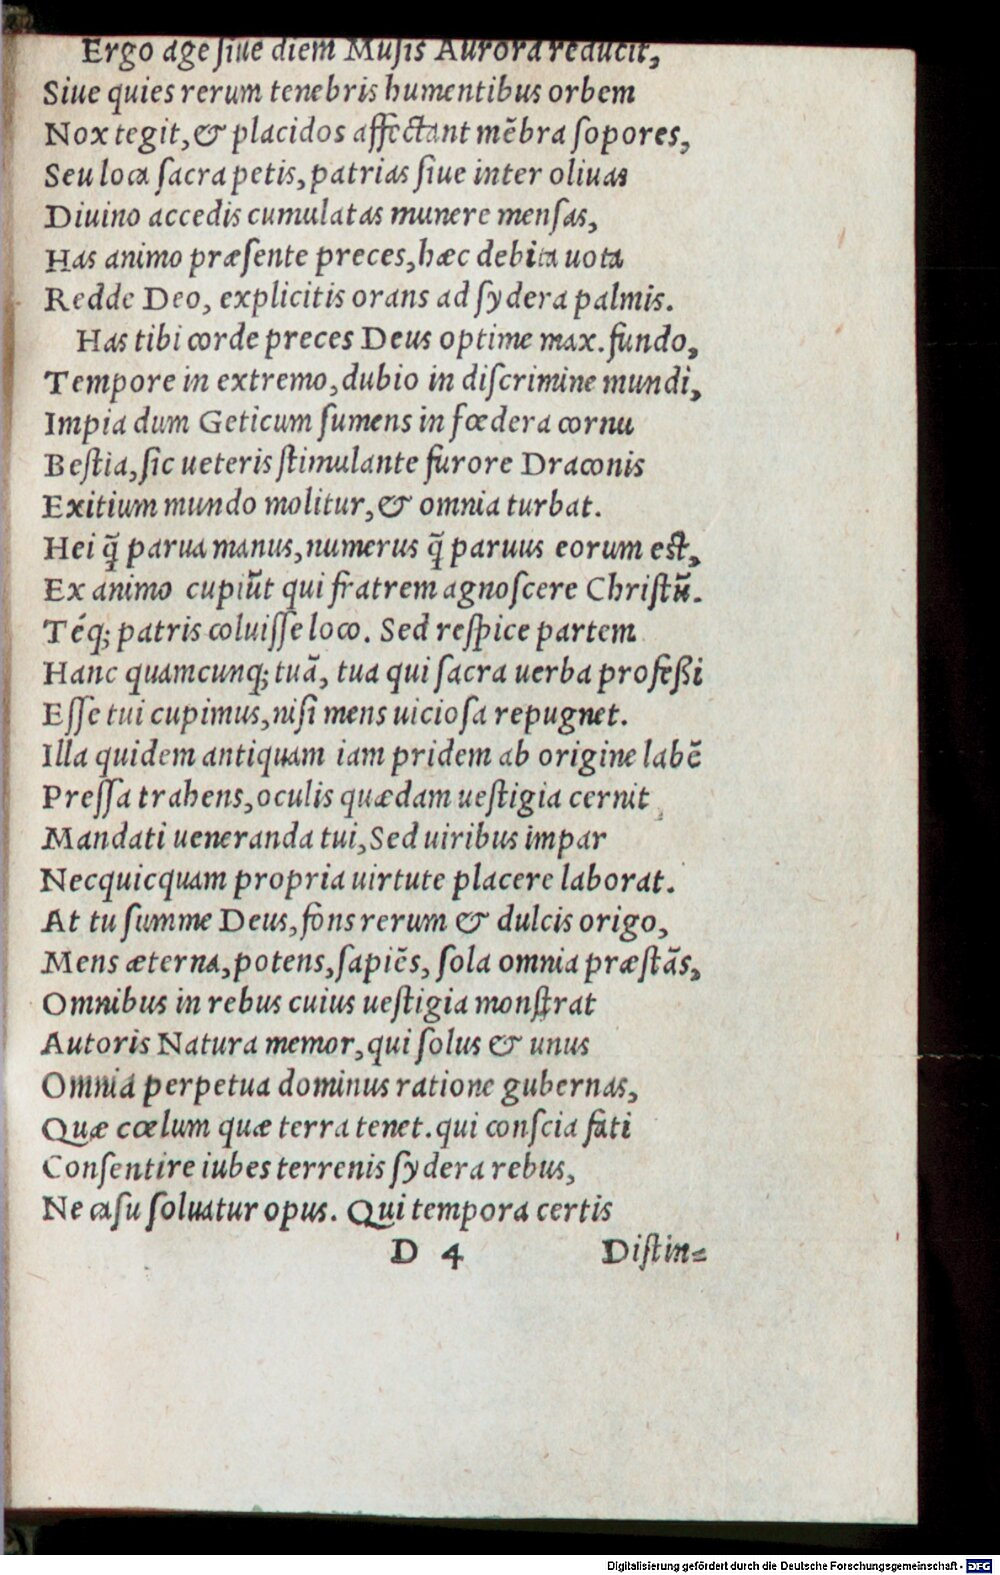 Ergo age ſiue diem Muſis Aurora reducit,
Siue quies rerum tenebris humentibus orbem
Nox tegit, & placidos affectant mẽbra ſopores,
Seu loca ſacra petis, patrias ſiue inter oliuas
Diuino accedis cumulatas munere menſas,
Has animo præſente preces, hæc debita uota
Redde Deo, explicitis orans ad ſydera palmis.
Has tibi corde preces Deus optime max. fundo,
Tempore in extremo, dubio in diſcrimine mundi,
Impia dum Geticum ſumens in fœdera cornu
Beſtia, ſic ueteris ſtimulante furore Draconis
Exitium mundo molitur, & omnia turbat.
Hei q̃ parua manus, numerus q̃ paruus eorum est,
Ex animo cupiũt qui fratrem agnoſcere Chriſtũ.
Téq; patris coluiſſe loco. Sed reſpice partem
Hanc quamcunq; tuã, tua qui ſacra uerba profeßi
Eſſe tui cupimus, niſi mens uicioſa repugnet.
Illa quidem antiquam iam pridem ab origine labẽ
Preſſa trahens, oculis quædam ueſtigia cernit
Mandati ueneranda tui, Sed uiribus impar
Necquicquam propria uirtute placere laborat.
At tu ſumme Deus, fons rerum & dulcis origo,
Mens æterna, potens, ſapiẽs, ſola omnia præſtãs,
Omnibus in rebus cuius ueſtigia monſtrat
Autoris Natura memor, qui ſolus & unus
Omnia perpetua dominus ratione gubernas,
Quæ cœlum quæ terra tenet. qui conſcia fati
Conſentire iubes terrenis ſydera rebus,
Ne caſu ſoluatur opus. Qui tempora certis
D 4 Diſtin=
Digitalisierung gefördert durch die Deutsche Forschungsgemeinschaft - DFG